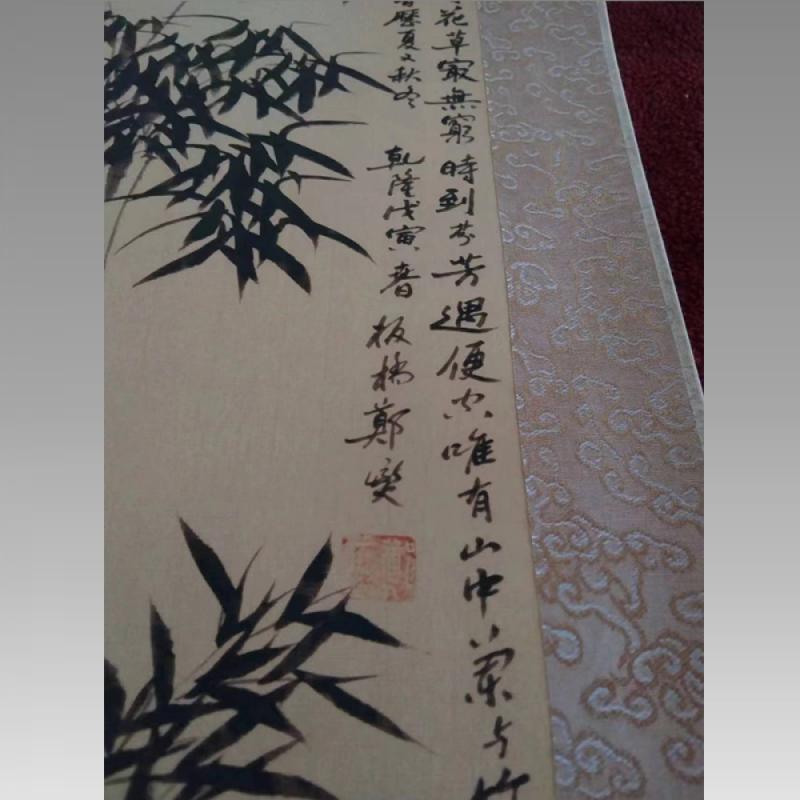 花草最無窮時到芬芳過便空唯有山中蘭与竹
歷夏又秋冬
乾隆戊寅春板橋鄭燮